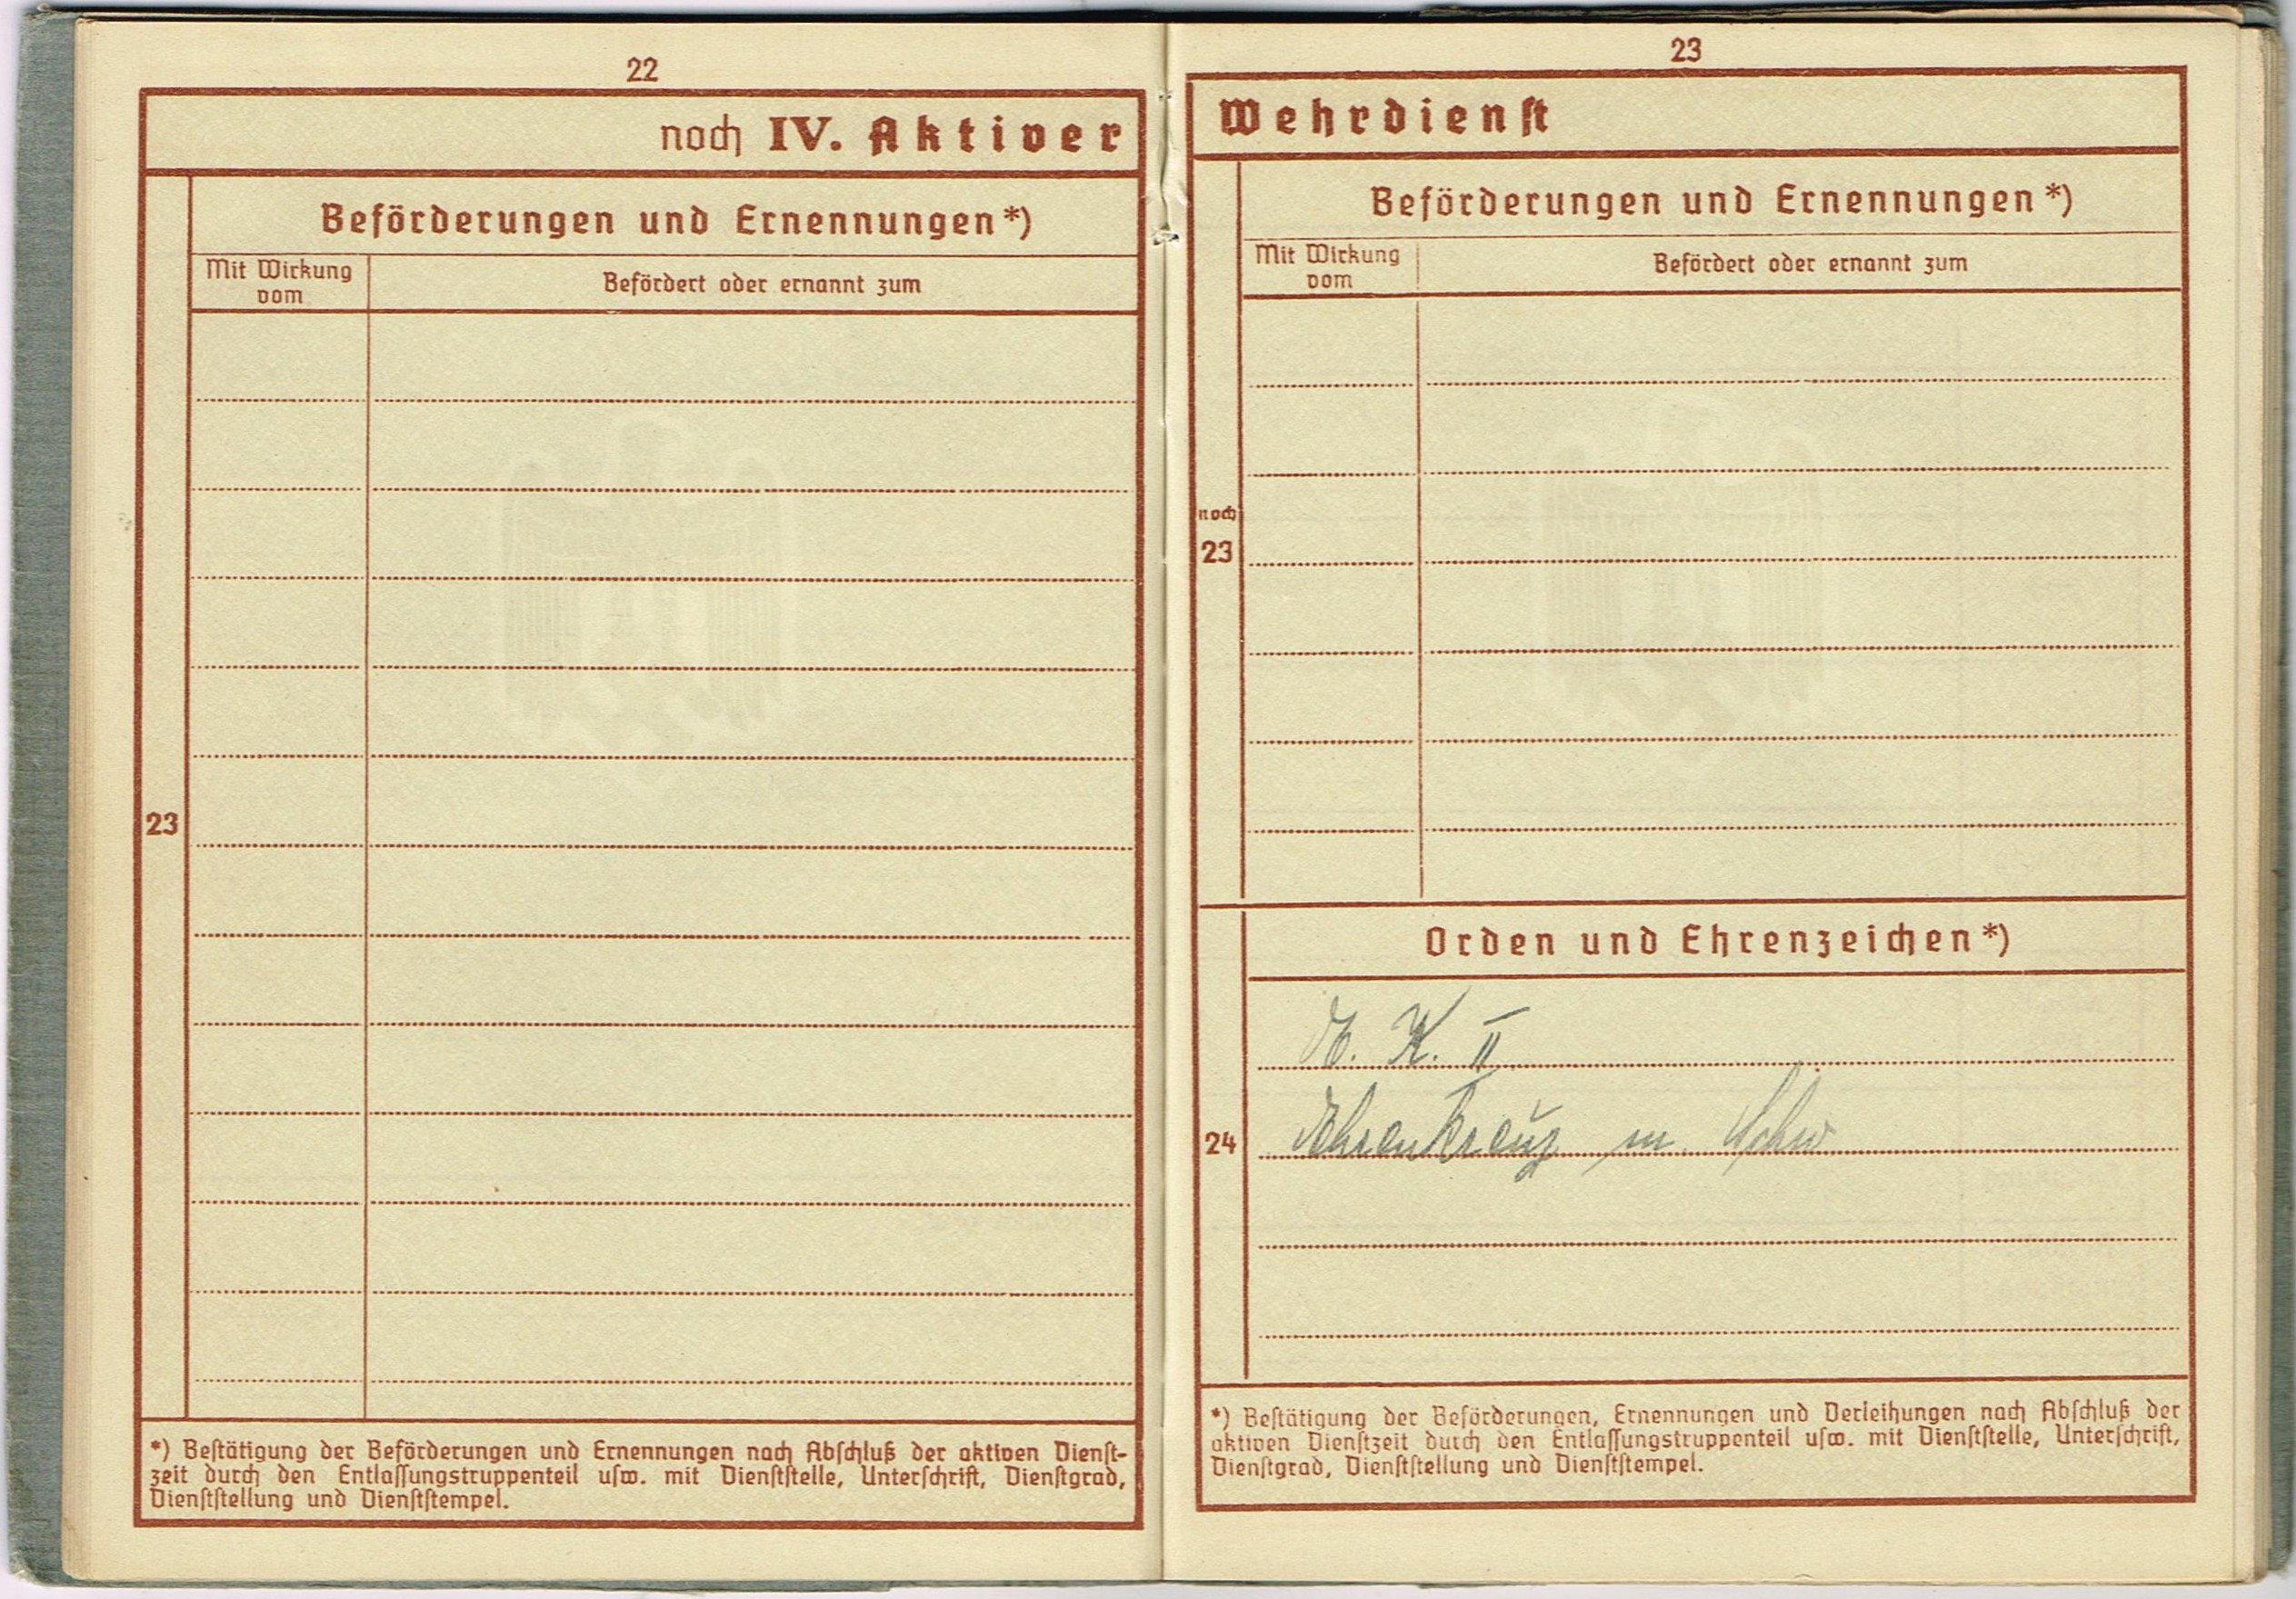 22
noch IV. Aktiver
Beförderungen und Ernennungen*)
Mit Wirkung
vom
Befördert oder ernannt zum
23
*) Bestätigung der Beförderungen und Ernennungen nach Abschluß der aktiven Dienst-
zeit durch den Entlassungstruppenteil usw. mit Dienststelle, Unterschrift, Dienstgrad,
Dienststellung und Dienststempel.
23
Wehrdienst
Beförderungen und Ernennungen*)
Mit Wirkung
vom
Befördert oder ernannt zum
noch
23
Orden und Ehrenzeichen*)
E. K. II
24
Ehrenkreuz m. Schw
*) Bestätigung der Beförderungen, Ernennungen und Verleihungen nach Abschluß der
aktiven Dienstzeit durch den Entlassungstruppenteil usw. mit Dienststelle, Unterschrift,
Dienstgrad, Dienststellung und Dienststempel.